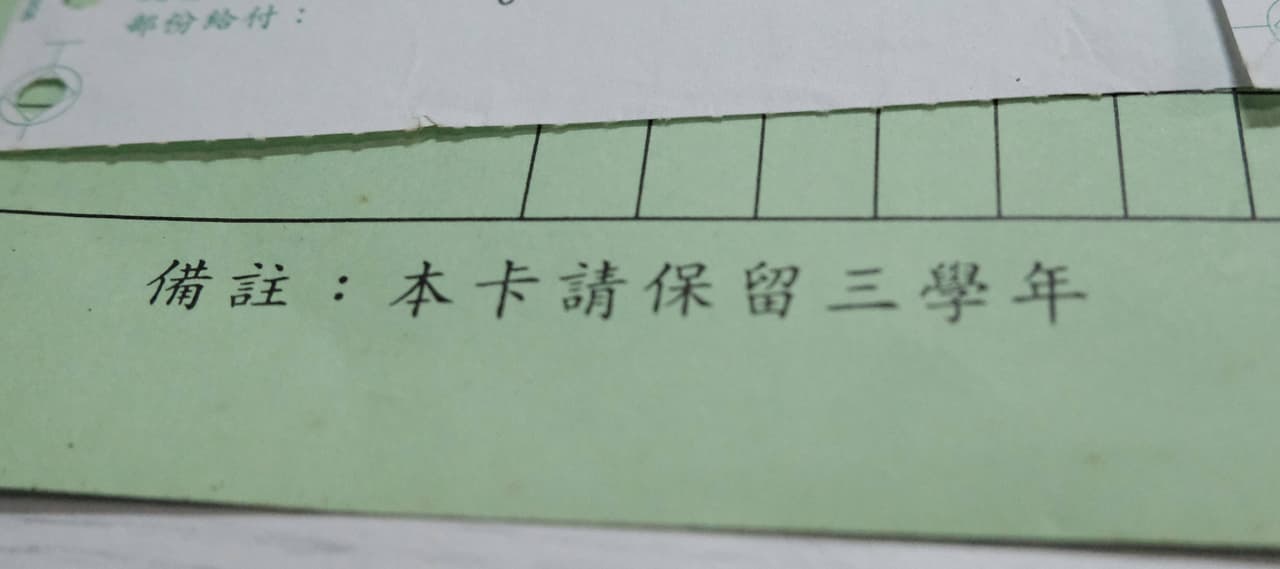 部份給付：
備註：本卡請保留三學年